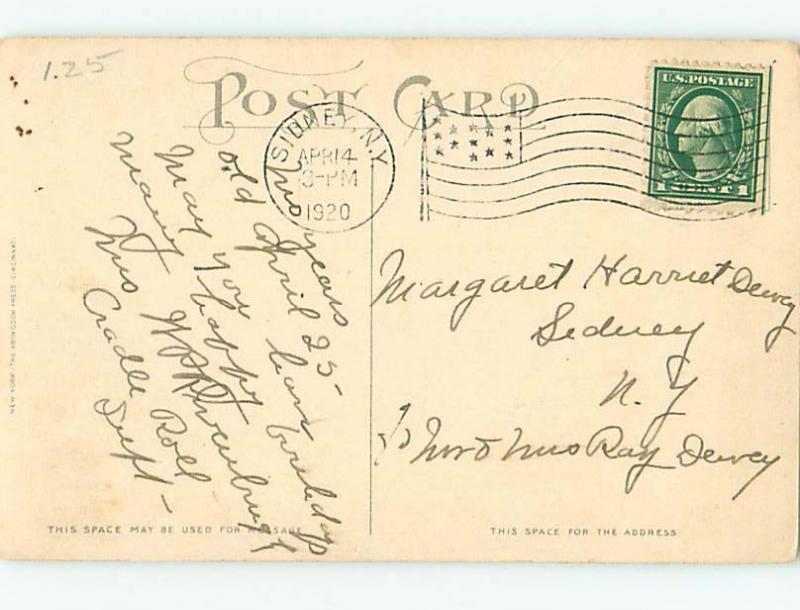 1.25
POST CARD
SIDNEY, N.Y.
APR 14
3-PM
1920
U.S. POSTAGE
1 CENT 1
Two years
old April 25 -
May you have
many happy birthdays
Mrs W
Cradle Roll
Supt -
Margaret Harriet Dewey
Sidney
N. Y
c/o Mr & Mrs Ray Dewey
NEW YORK - THE ABINGDON PRESS - CINCINNATI
THIS SPACE MAY BE USED FOR MESSAGE
THIS SPACE FOR THE ADDRESS